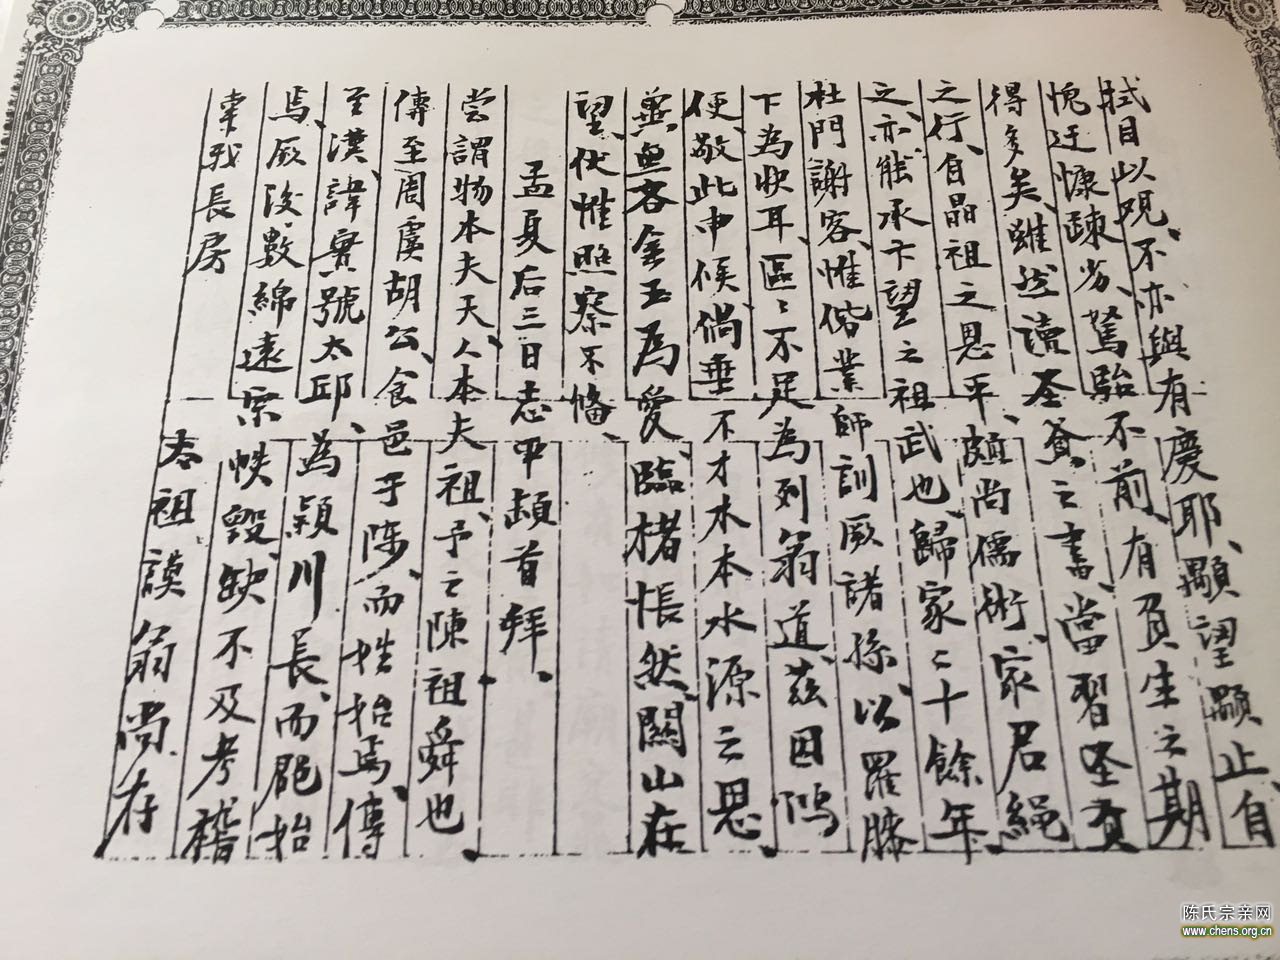 拭目以观、不亦與有慶耶、顒望顒止、自
愧迂慷踈劣、駑駘不前、有負生之期
得多矣、雖然讀圣賢之書、當習圣賢
之行、自晶祖之恩平、頗尚儒術、家君繩
之、亦能承卞望之祖武也、歸家二十餘年、
杜門謝客、惟偕業師訓厥諸孫、以羅膝
下為快耳、區〻不足為列翁道、兹因鸿
便、敬此申候、倘垂不才水本水源之思、
無吝金玉為愛、臨楮悵然、關山在
望、伏惟照察不偹、
孟夏后三日志平頓首拜、
尝謂物本夫天、人本夫祖、予之陳祖舜也、
傳至周虞胡公、食邑于陈、而姓始焉、傳
至漢、諱寔號太邱、為潁川長、而郡始
焉、厥後數綿遠宗帙毁缺不及考稽
幸我長房
太祖謨翁尚存